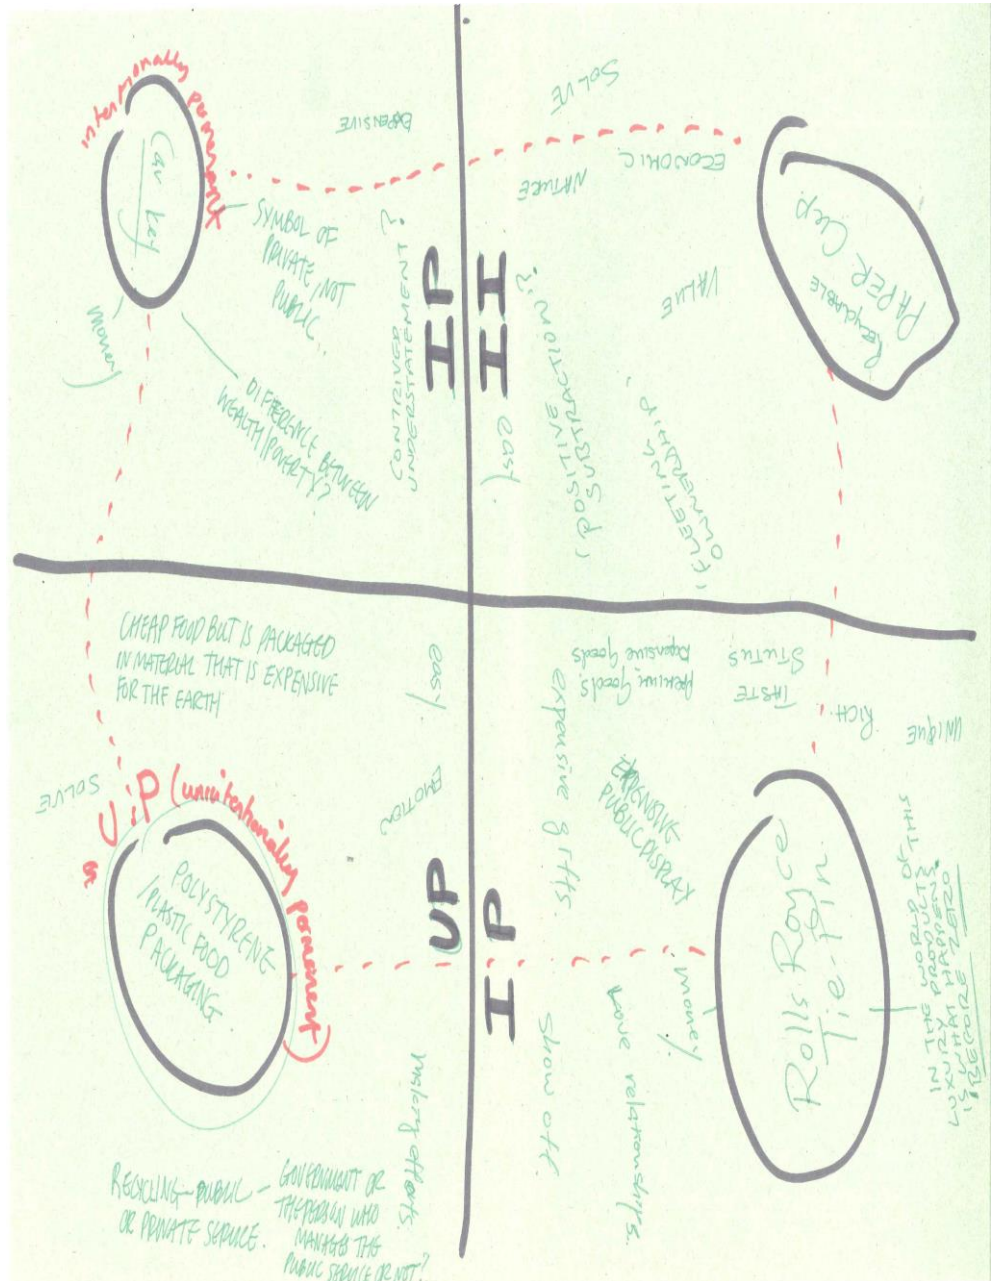 intentionally permanent
Car key
EXPENSIVE
SYMBOL OF
PRIVATE, NOT
PUBLIC
money
DIFFERENCE BETWEEN
WEALTH/POVERTY?
CONTRIVED
UNDERSTATEMENT?
IP
SOLVE
ECONOMIC
NATURE
VALUE
II
easy
"POSITIVE
SUBSTRACTION"?
'FLEETING
OWNERDHIP'
RECYCLABLE
PAPER CUP
CHEAP FOOD BUT IS PACKAGED
IN MATERIAL THAT IS EXPENSIVE
FOR THE EARTH
easy
EMOTION
SOLVE
U:P (unintentionally permanent)
POLYSTYRENE
/PLASTIC FOOD
PACKAGING
UP
RECYCLING - PUBLIC -
OR PRIVATE SERVICE.
GOVERNMENT OR
THE PERSON WHO
MANAGES THE
PUBLIC SERVICE OR NOT?
STUTUS
TASTE
Expensive Goods
Premium Goods.
RICH.
UNIQUE
expensive gifts.
EXPENSIVE
PUBLIC DISPLAY
IP
show off
love relationships.
money
Rolls Royce
Tie-Pin
IN THE WORLD OF THIS
LUXURY PRODUCTS
IS WHAT HAPPENS
BEFORE ZERO